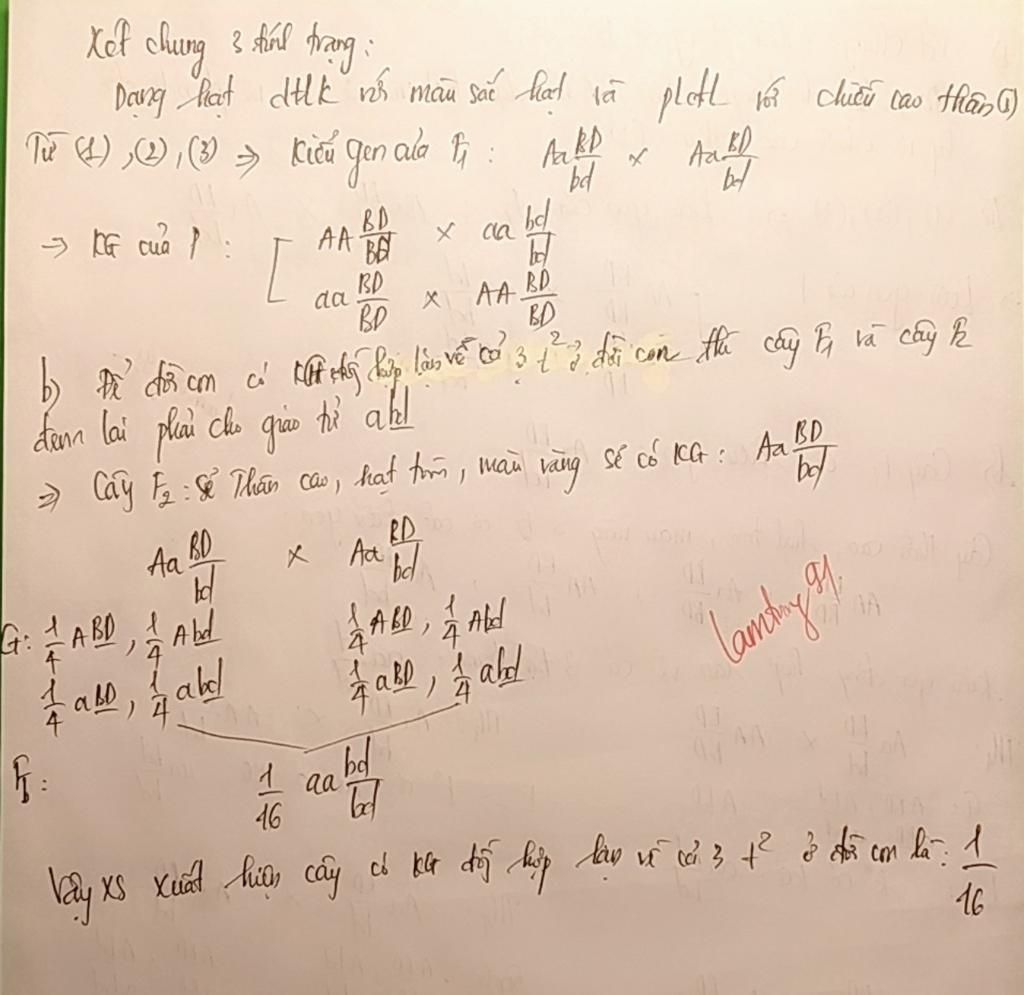 Xét chung 3 tính trạng:
Dạng hạt dtlk với màu sắc hạt và pldl với chiều cao thân (3)
Từ (1), (2), (3) => Kiểu gen của F1: Aa BD/bd x Aa BD/bd
-> KG của P: AA BD/BD x aa bd/bd
aa BD/BD x AA BD/BD
b) Để đời con có KG đồng hợp lặn về cả 3 t² ở đời con thì cây F1 và cây F2
đem lai phải cho giao tử abd
=> Cây F2: Thân cao, hạt tròn, màu vàng sẽ có KG: Aa BD/bd
Aa BD/bd x Aa BD/bd
G: 1/4 ABD, 1/4 Abd 1/4 ABD, 1/4 Abd
1/4 aBD, 1/4 abd 1/4 aBD, 1/4 abd
lamtung91
1/16 aa bd/bd
Vậy XS xuất hiện cây có KG đồng hợp lặn về cả 3 t² ở đời con là: 1/16